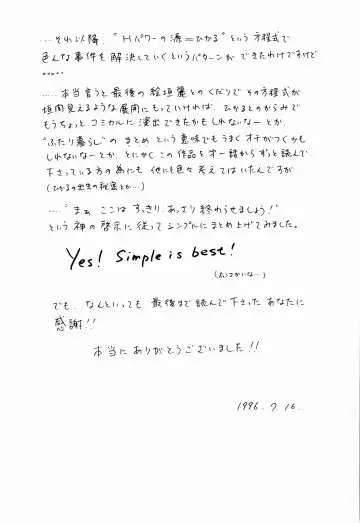 ....それ以降、"Hパワーの源=ひかる"という方程式で
色んな事件を解決していくというパターンができたわけですけど
.....
.....本当言うと最後の絵垣麗とのくだりでその方程式が
垣間見えるような展開にもっていければ、ひかるとのからみで
もうちょっとコミカルに演出できたかもしれないなーとか、
"ふたり暮らし"のまとめという意味でもうまくオチがつくかも
しれないなーとか、とにかくこの作品を第一話からずっと読んで
下さっている方の為にも他にも色々考えてはいたんですが
(ひかるの出生の秘密とか...)
....."まぁここはすっきり、あっさり終わらせましょう!"
という神の啓示に従ってシンプルにまとめ上げてみました。
Yes! Simple is best!
でも、なんといっても最後まで読んで下さったあなたに
感謝!!
本当にありがとうございました!!
1996.7.16.